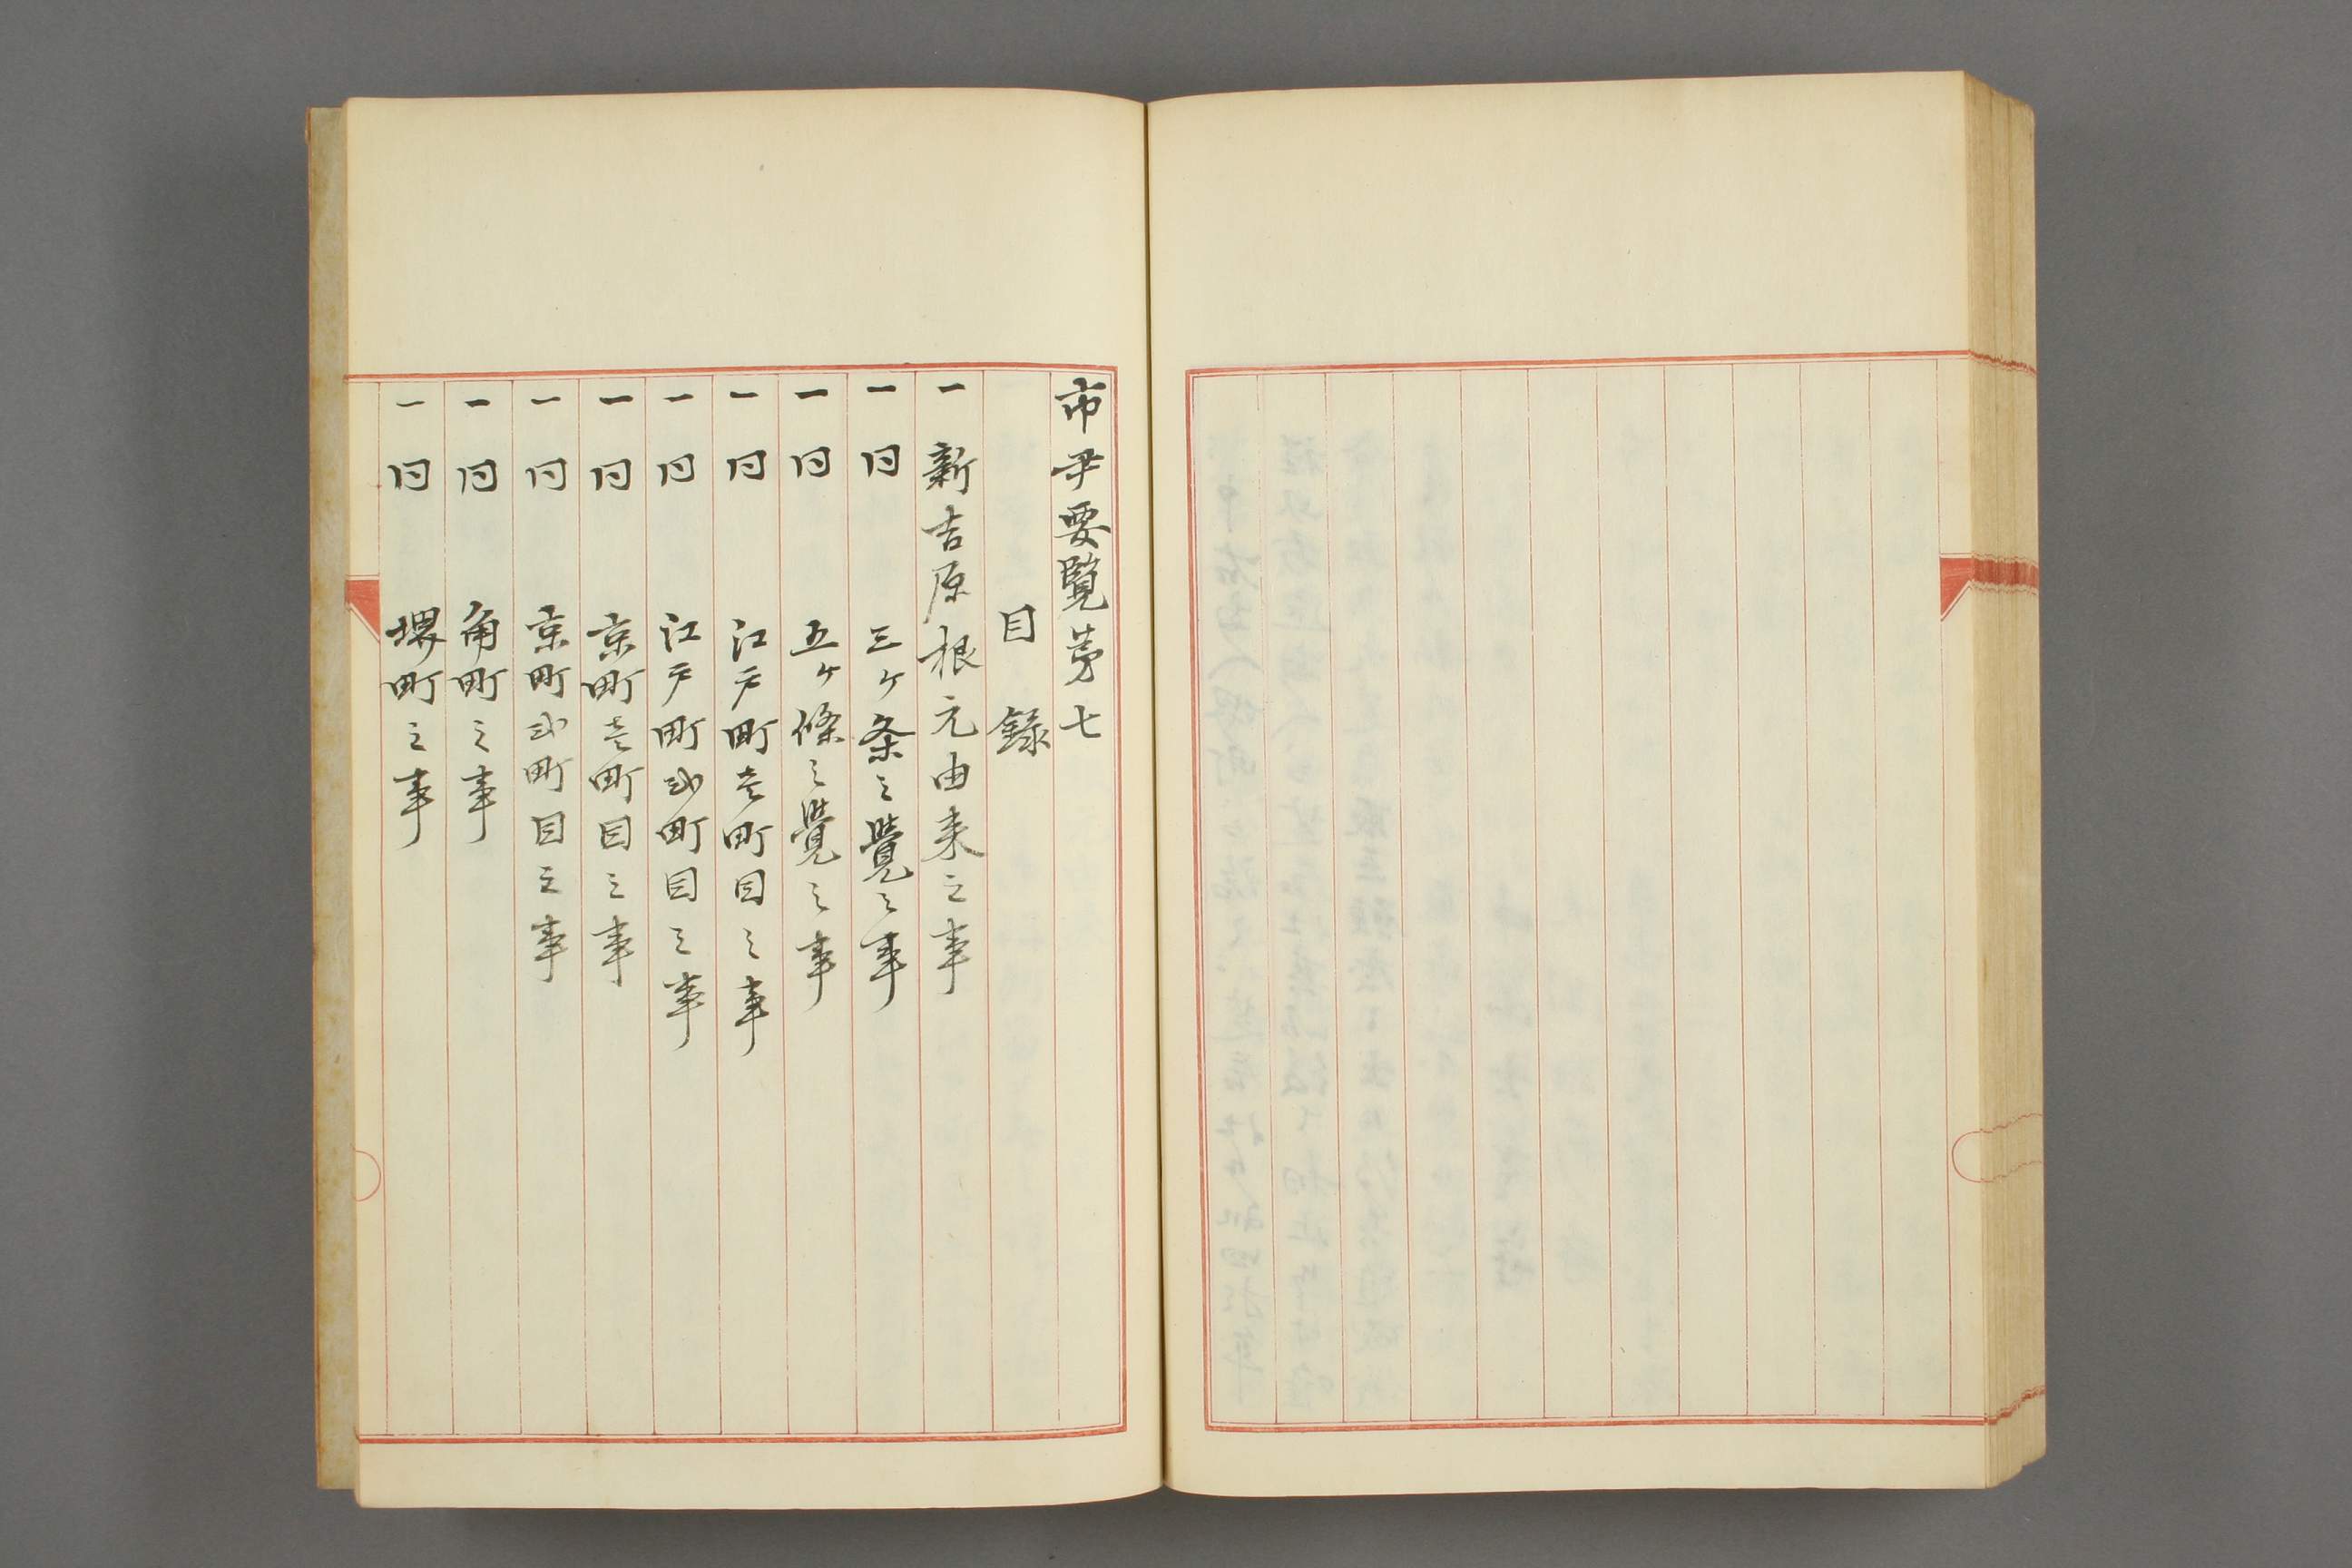 市尹要覧第七
目録
一 新吉原根元由来之事
一 同 三ヶ条之覺之事
一 同 五ヶ條之覺之事
一 同 江戸町壱町目之事
一 同 江戸町弐町目之事
一 同 京町壱町目之事
一 同 京町弐町目之事
一 同 角町之事
一 同 堺町之事